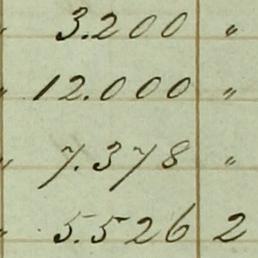 " 3.200 "
" 12.000 "
" 7.378 "
" 5.526 2